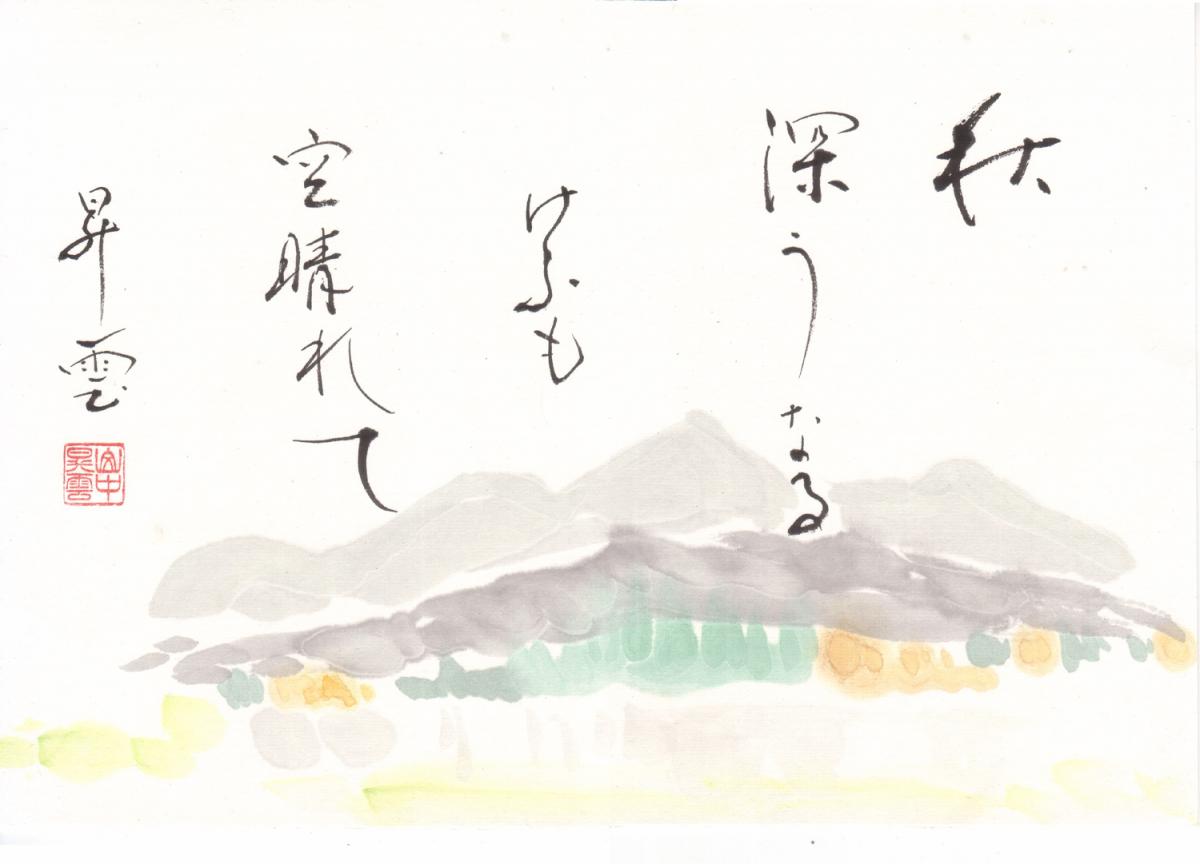 秋
深うなる
けふも
空晴れて
昇雲